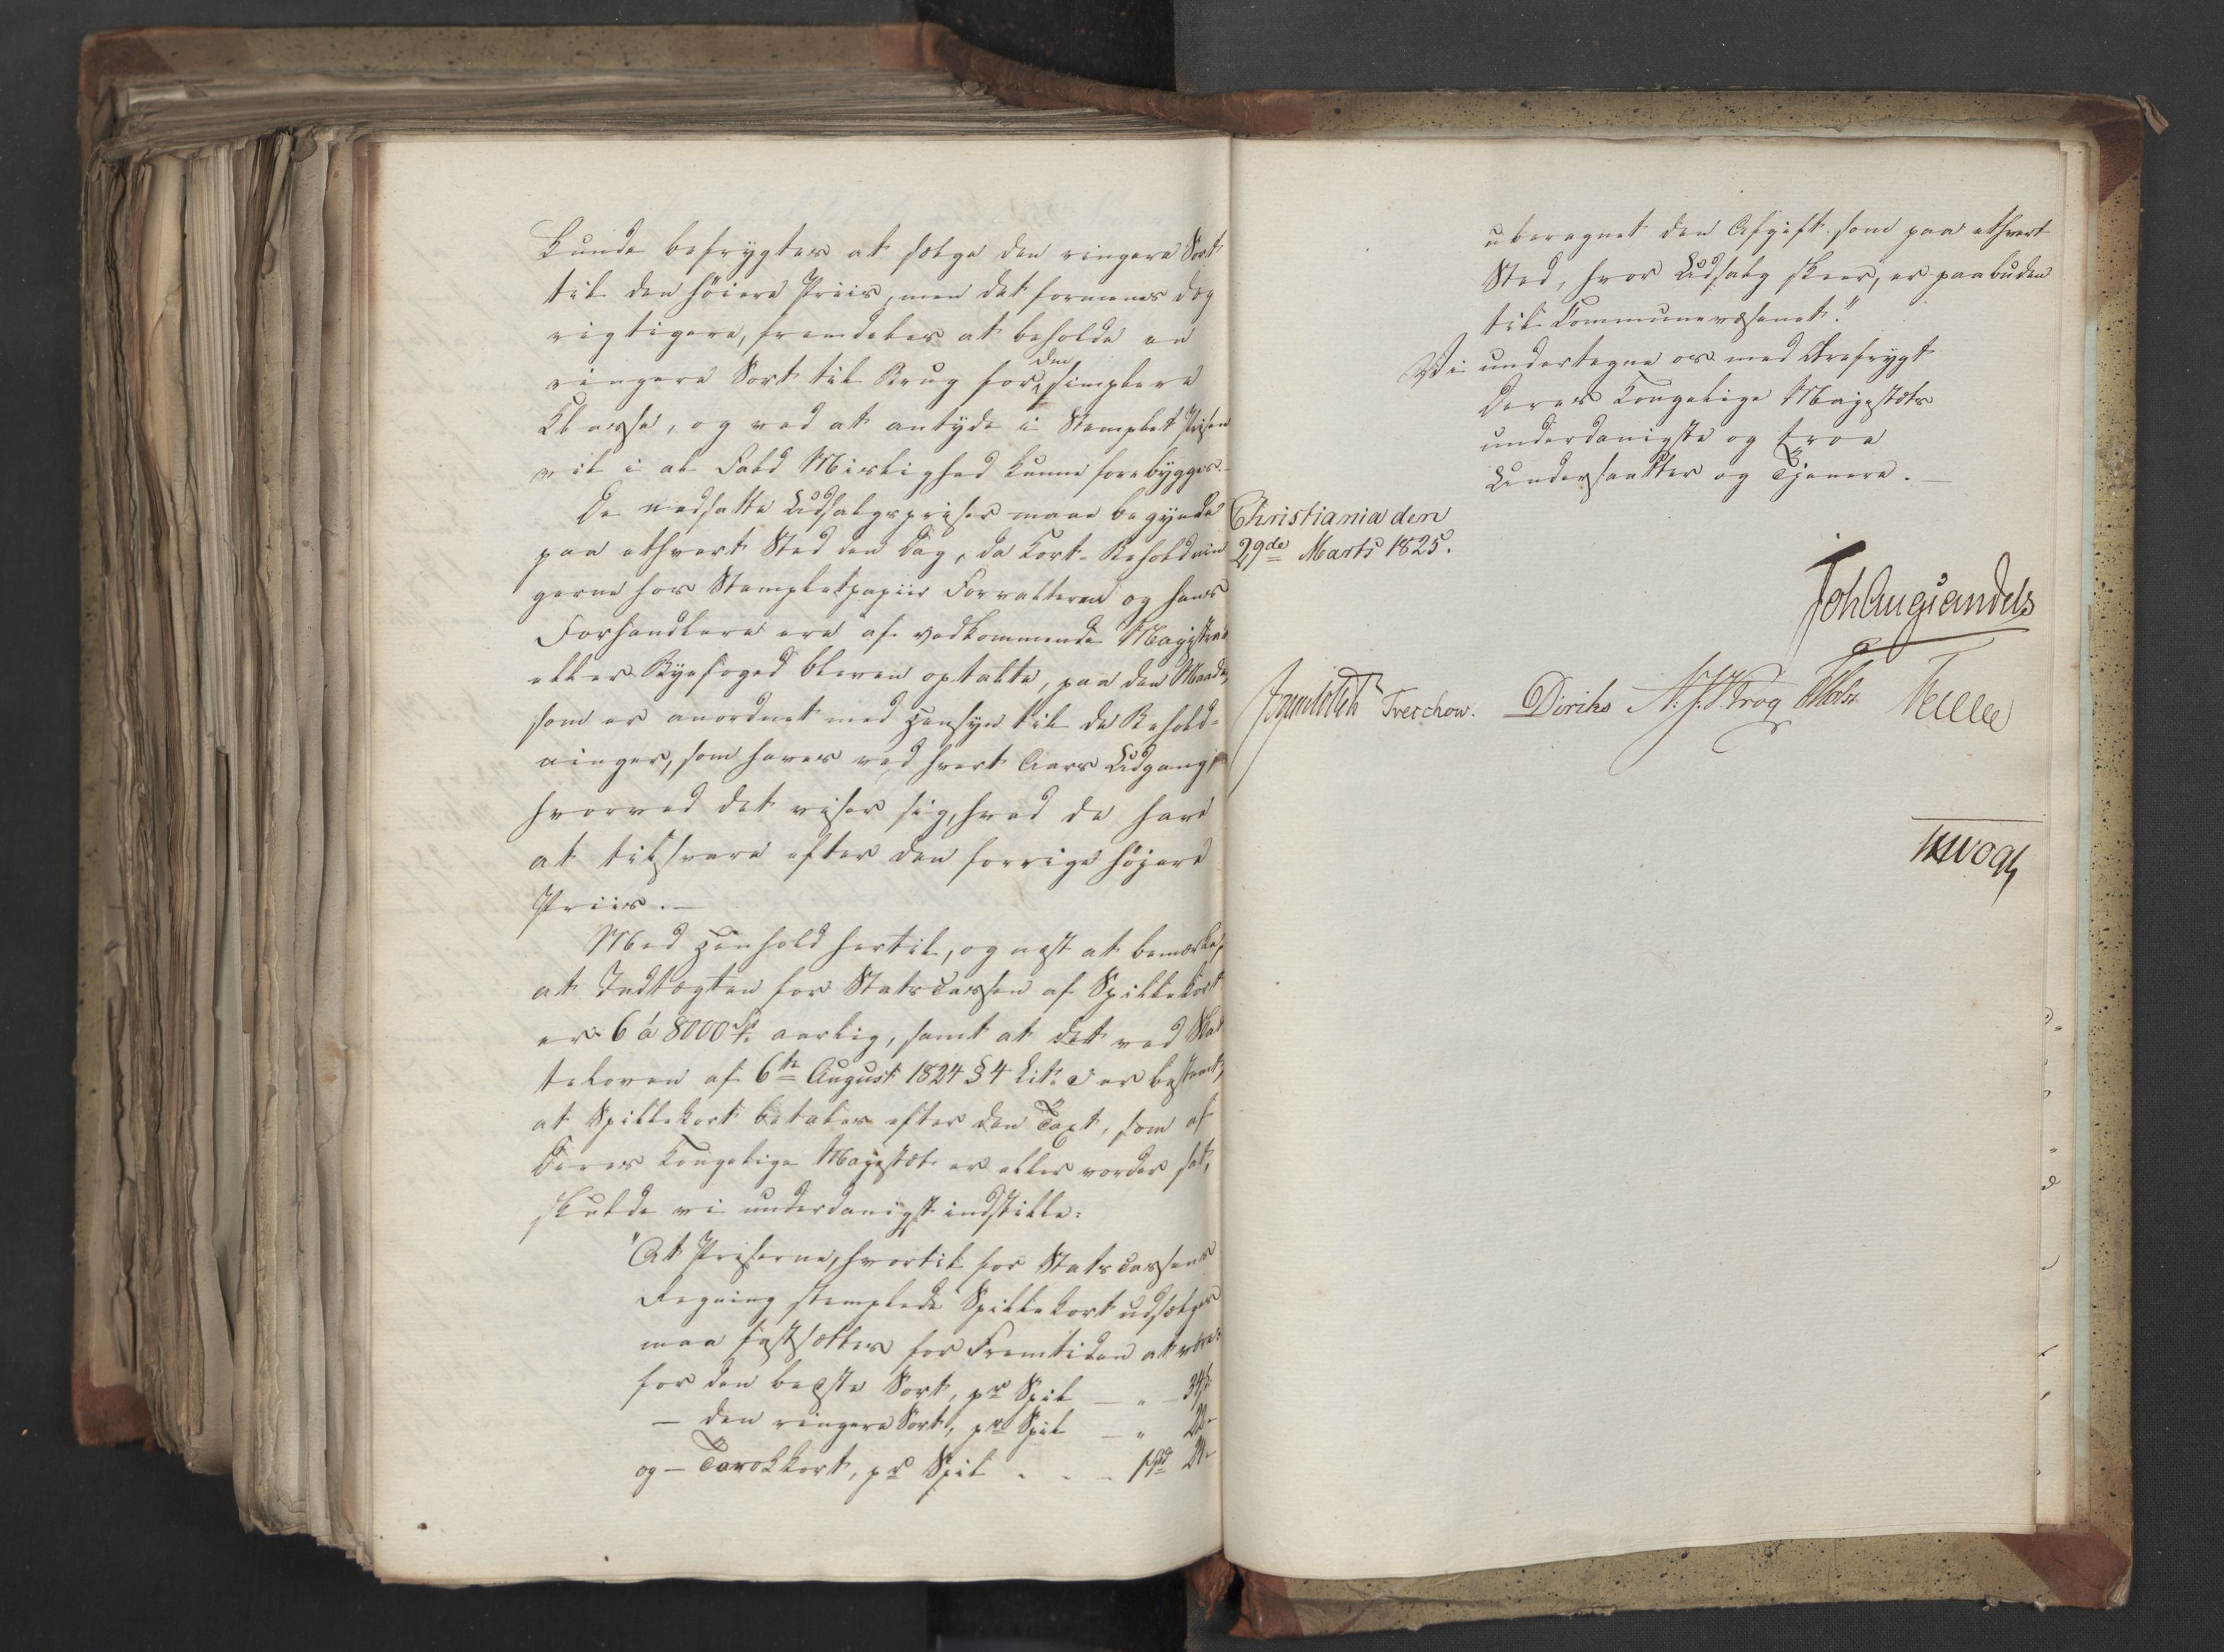 kunde befrygtes at sælge den ringere Sort
til den høiere Priis, men det formenes dog
rigtigere, fremdeles at beholde en
ringere Sort til Brug for den simplere
Klasse, og ved at antyde i Stemplet Prisen
vil i al Fald Mislighed kunne forebygges.
De nedsatte Udsalgspriser maae begynde
paa ethvert Sted den Dag, da Kort-Beholdnin
gerne hos Stempletpapiir Forvalteren og hans
Forhandlere ere af vedkommende Magistrat
eller Byefoged bleven optalte, paa den Maade,
som er anordnet med Hensyn til de Behold-
ninger, som haves ved hvert Aars Udgang,
hvorved det viser sig, hvad de have
at tilsvare efter den forrige højere
Priis.—
Med Henhold hertil, og næst at bemærke,
at Indtægten for Statscassen af Spillekort
er 6 á 8000 Sp. aarlig, samt at det ved Skat
teloven af 6te August 1824 § 4 Lit. c er bestemt,
at Spillekort betales efter den Taxt, som af
Deres Kongelige Majestæt er eller vorder sat,
skulde vi underdanigst indstille:
"At Priserne, hvortil for Statscassens
Regning stemplede Spillekort udsælges
maa fastsættes for Fremtiden at være:
for den bedste Sort, pr Spil — " — 34 ß.
— den ringere Sort, pr Spil — "
og — Tarokkort, pr Spil . . . 1 Spd
uberegnet den Afgift som paa ethvert
Sted, hvor Udsalg skeer, er paabuden
til Communevæsenet."
Vi undertegne os med Ærefrygt
Deres Kongelige Majestæts
underdanigste og troe
Undersaatter og Tjenere.—
Christiania den
29de Marts 1825.
Joh Aug Sandels
Treschow. Diriks N. J. Krog
JHVogt